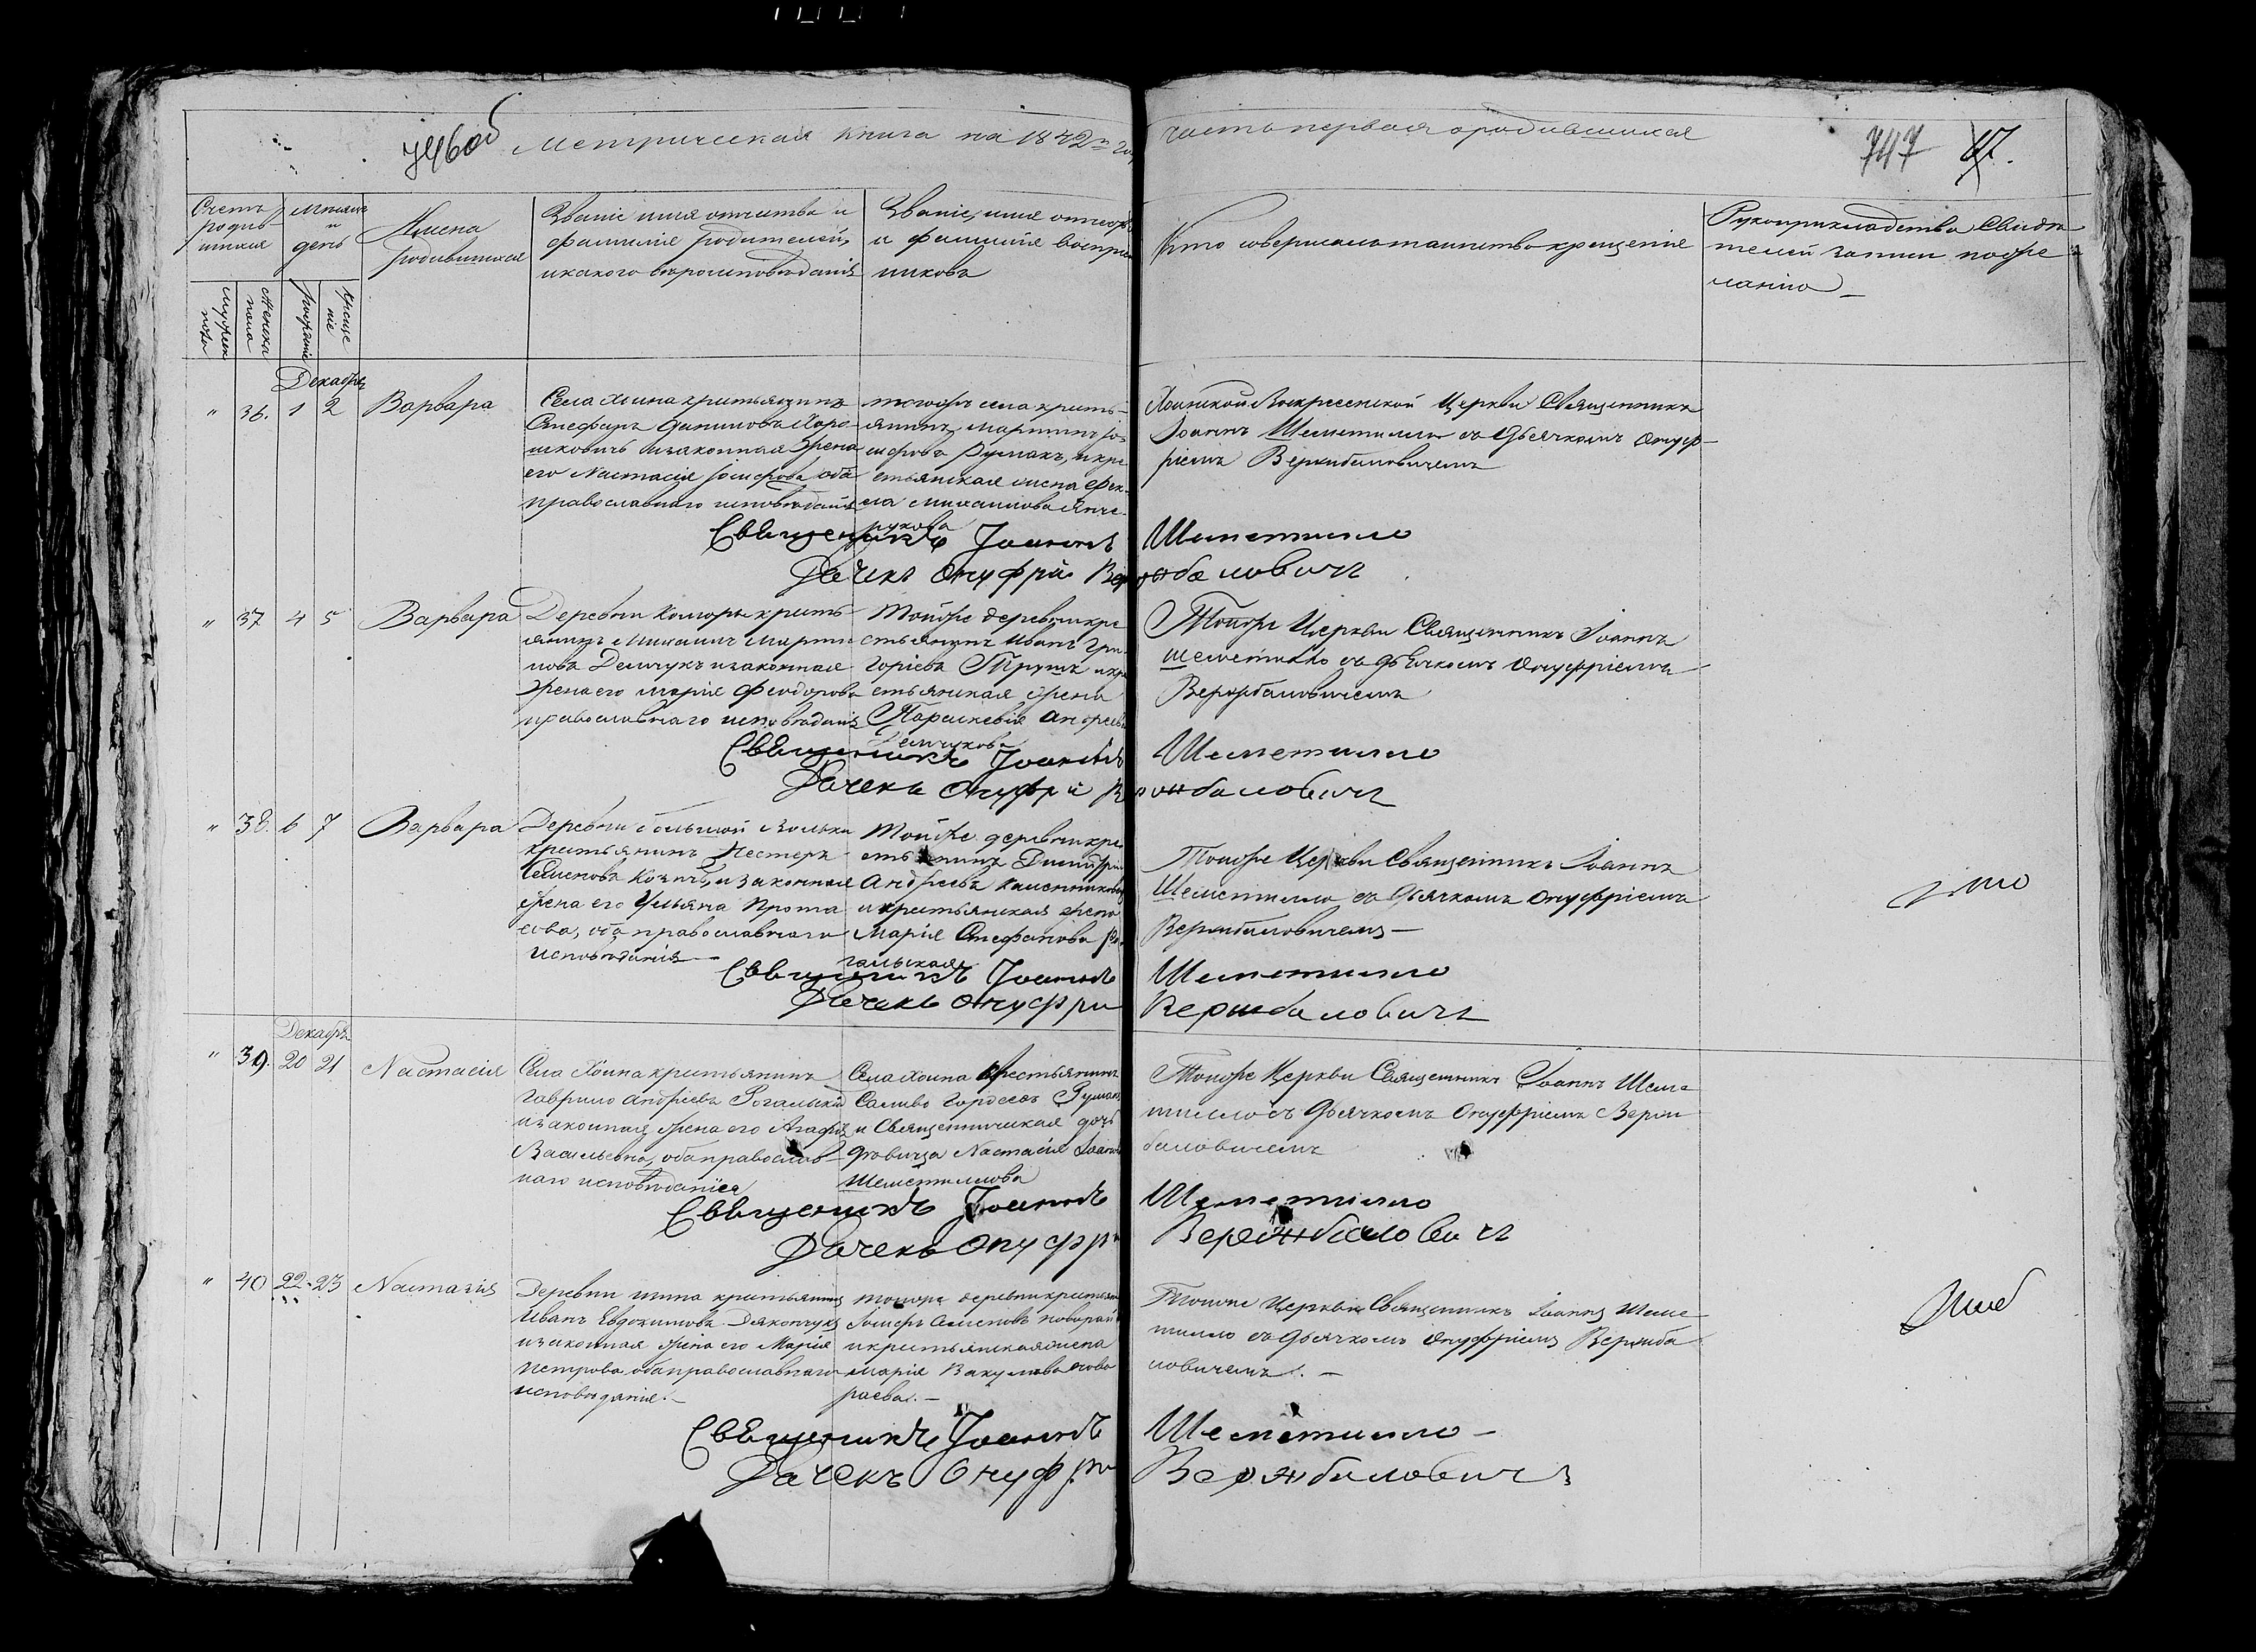 746об Метрическая книга на 1842й го часть первая о родившихся 747 67.
Счетъ родившихся
Мѣсяцъ и день
Имена родившихся
Званіе имя отчества и фамилія родителей, и какого вѣроисповѣданія
Званіе, имя отчество и фамилія воспріемниковъ
Кто совершалъ таинство крещенія
Рукоприкладство Свидѣтелей записи по желанію
мужеска пола
женска пола
рожденіе
крещеніе
Декабрь
" 36. 1 2 Варвара
Села Хоина крестьянинъ
Стефанъ
шковичъ и законная жена
его Настасія Іосифова оба
православнаго исповѣданія
тогожъ села кресть-
янинъ Мартинъ Іо-
сифовъ Румакъ, и кре
стьянская жена Фек-
ла Михаилова Янче-
рукова
Хоинской Воскресенской Церкви Священникъ
Іоаннъ Шеметилло съ дьячкомъ Онуф-
ріемъ Вержбаловичемъ
Священникъ Іоаннъ Шеметилло
Дячекъ Онуфрій Вержбаловичъ
" 37 4 5 Варвара
Деревни Коморы кресть
янинъ Михаилъ Марти
новъ Демчукъ и законная
жена его Марія Феодорова
православнаго исповѣданія
Тойже деревни кре
стьянинъ Иванъ Гри-
горіевъ Трушъ и кре
стьянская жена
Параскевія Андреева
Демчукова
Тойже Церкви Священникъ Іоаннъ
Шеметилло съ дьячкомъ Онуфріемъ
Вержбаловичемъ
Священникъ Іоаннъ Шеметилло
Дячекъ Онуфрій Вержбаловичъ
" 38. 6 7 Варвара
Деревни большой Вольки
крестьянинъ Нестеръ
Семеновъ и законная
жена его Ульяна Прота
сова, оба православнаго
исповѣданія
Тойже деревни кре
стьянинъ Димитрій
Андреевъ
и крестьянская жена
Марія Стефанова Ро
гальская
Тойже Церкви Священникъ Іоаннъ
Шеметилло съ дьячкомъ Онуфріемъ
Вержбаловичемъ —
Священникъ Іоаннъ Шеметилло
Дячекъ Онуфри Вержбаловичъ
Декабрь
" 39. 20 21 Настасія
Села Хоина крестьянинъ
Гаврило Андріевъ Рогальскій
и законная жена его Агафія
Васильевна, оба православ-
наго исповѣданія
Села Хоина Крестьянинъ
Румакъ
и Священническая дочь
дѣвица Настасія Іоанн
Шеметиллова
Тойже Церкви Священникъ Іоаннъ Шеме
тилло съ дьячкомъ Онуфріемъ Верж
баловичемъ
Священникъ Іоаннъ Шеметилло
Дячекъ Онуфри Вережбаловичъ
" 40 22 23 Настазія
Деревни крестьянинъ
Иванъ Евдокимовъ Дякончукъ
и законная жена его Марія
Петрова оба православнаго
исповѣданія. —
тойже деревни крестьян
Іосифъ Семеновъ
и крестьянская жена
Марія Вакулова
раева. —
Тойже Церкви Священникъ Іоаннъ Шеме
тилло съ дьячкомъ Онуфріемъ Вержба
ловичемъ. —
Священникъ Іоаннъ Шеметилло —
Дячекъ Онуфри Вержбаловичъ